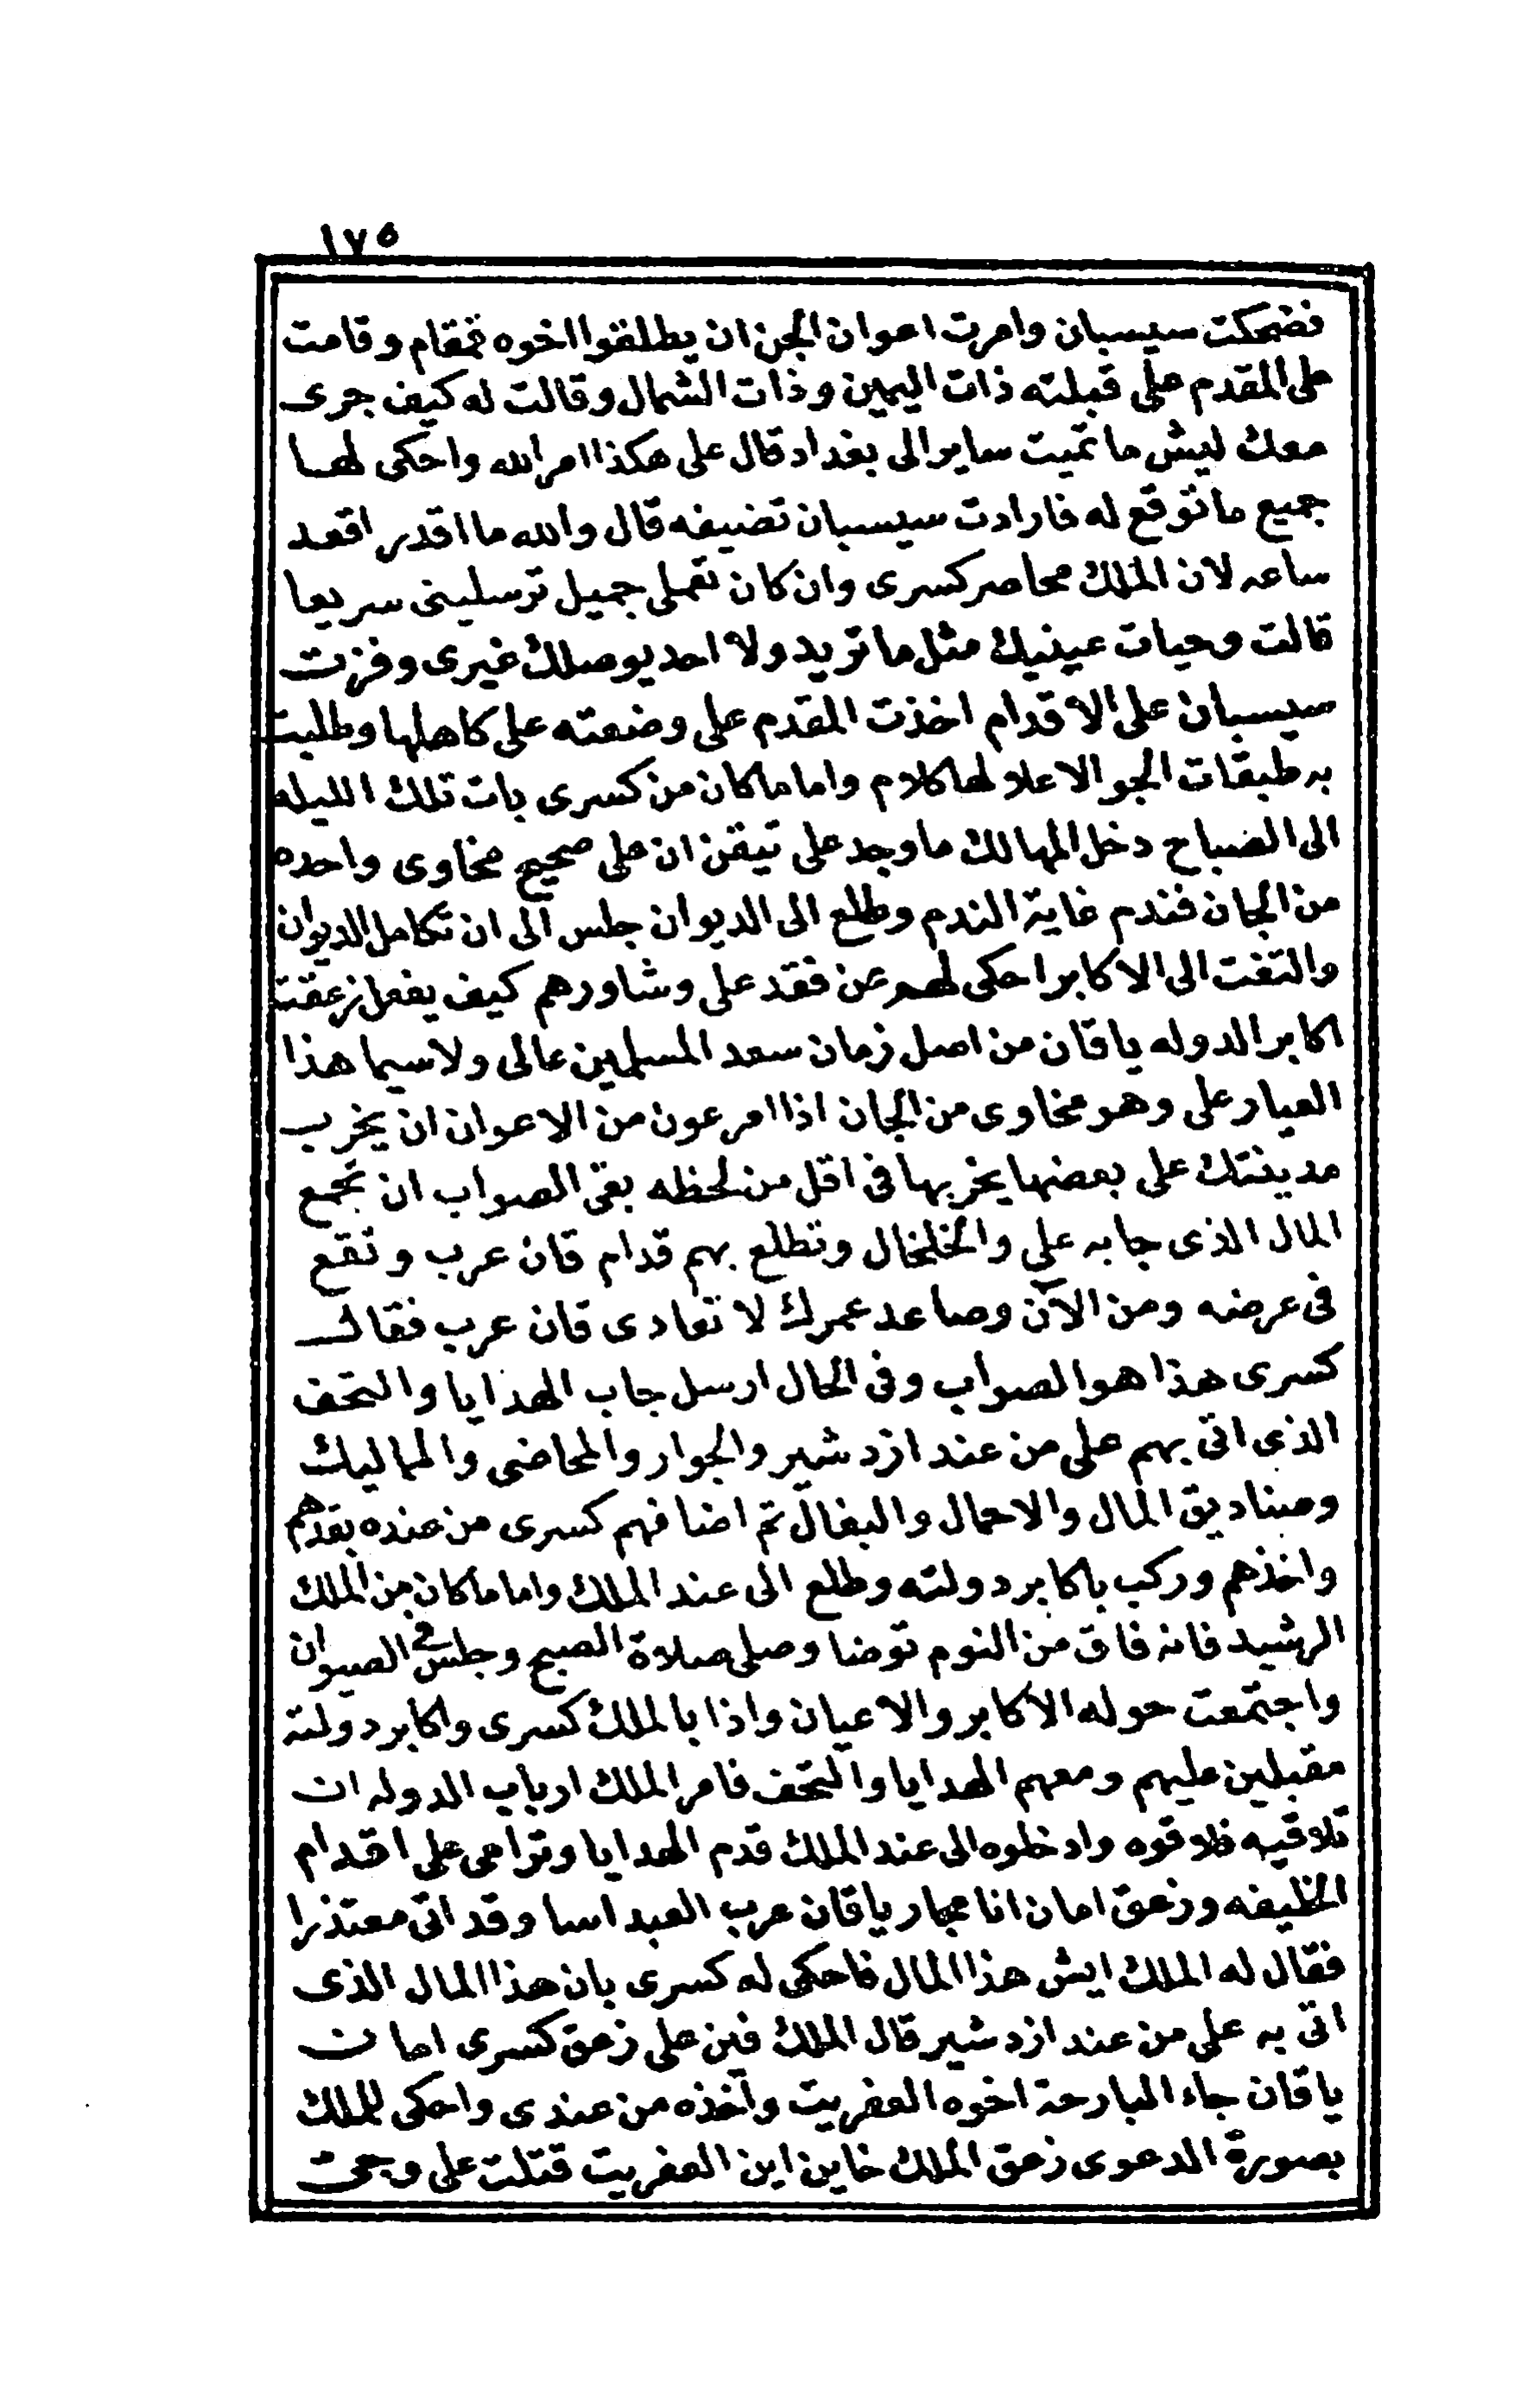 ١٧٥
فضحكت سيسبان وامرت اعوان الجن ان يطلقوا اخوه قمقام وقامت
على المقدم على قبلته ذات اليمين وذات الشمال وقالت له كيف جرى
معك ليش ما تميت ساير الى بغداد قال على هكذا امر الله واحكى لها
جميع ما توقع له فارادت سيسبان تضيفه قال والله ما اقدر اقعد
ساعه لان الملك محاصر كسرى وان كان تعملى جميل ترسلينى سريعا
قالت وحيات عينيك مثل ما تريد ولا احد يوصلك غيرى وفزت
سيسبان على الاقدام اخذت المقدم على وضعته على كاهلها وطلبت
به طبقات الجو الاعلا لها كلام واما ما كان من كسرى بات تلك الليله
الى الصباح دخل المهالك ما وجد على تيقن ان على صحيح مخاوى واحده
من الجان فندم غاية الندم وطلع الى الديوان جلس الى ان تكامل الديوان
والتفت الى الاكابر احكى لهم عن فقد على وشاورهم كيف يفعل زعقت
اكابر الدوله ياقان من اصل زمان سعد المسلمين عالى ولا سيما هذا
العيار على وهو مخاوى من الجان اذا امر عون من الاعوان ان يخرب
مدينتك على بعضها يخربها فى اقل من لحظه بقى الصواب ان تجمع
المال الذى جابه على والخلخال وتطلع بهم قدام قان عرب وتقع
فى عرضه ومن الآن وصاعد عمرك لا تعادى قان عرب فقال
كسرى هذا هو الصواب وفى الحال ارسل جاب الهدايا والتحف
الذى اتى بهم على من عند ازدشير والجوار والمحاضى والمماليك
وصناديق المال والاحمال والبغال ثم اضافهم كسرى من عنده بقدهم
واخذهم وركب باكابر دولته وطلع الى عند الملك واما ما كان من الملك
الرشيد فانه فاق من النوم توضا وصلى صلاة الصبح وجلس فى الصيوان
واجتمعت حوله الاكابر والاعيان واذا بالملك كسرى واكابر دولته
مقبلين عليهم ومعهم الهدايا والتحف فامر الملك ارباب الدوله ان
تلاقيه فلاقوه وادخلوه الى عند الملك قدم الهدايا وترامى على اقدام
الخليفه وزعق امان انا مجار ياقان عرب العبد اسا وقد اتى معتذرا
فقال له الملك ايش هذا المال فاحكى له كسرى بان هذا المال الذى
اتى به على من عند ازدشير قال الملك فين على زعق كسرى امان
ياقان جاء البارحة اخوه العفريت واخذه من عندى واحكى للملك
بصورة الدعوى زعق الملك خاين ابن العفريت قتلت على وجيت